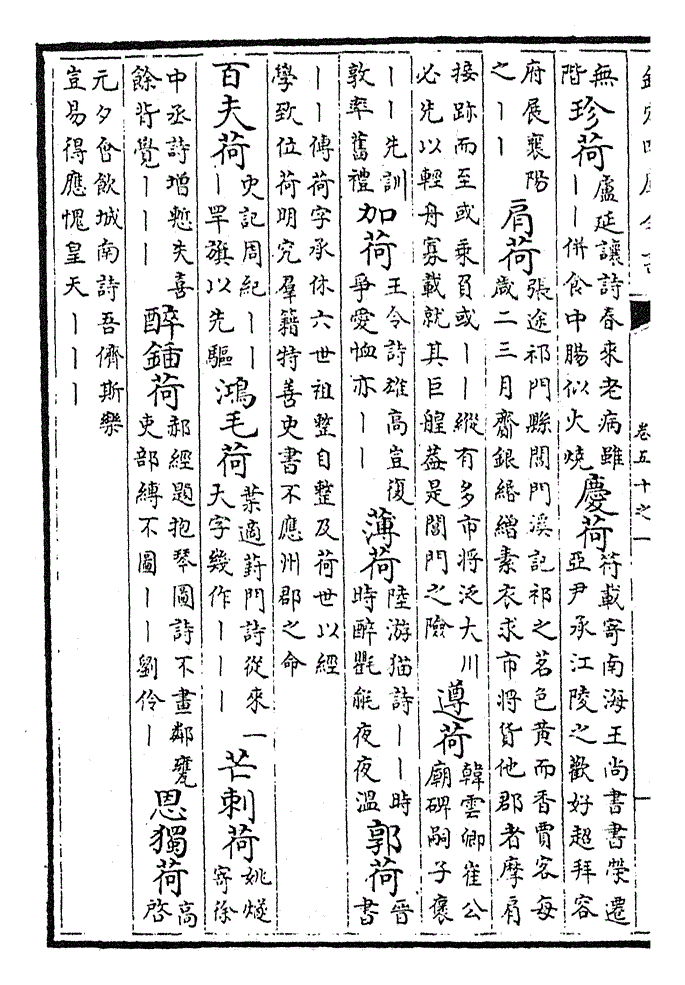 欽定四庫全書 卷五十之一
無階 珍荷 盧延讓詩春來老病雖——併食中腸似火燒 慶荷 符載寄南海王尚書書榮遷亞尹承江陵之歡好超拜容
府展襄陽之—— 肩荷 張途祁門縣閶門溪記祁之茗色黃而香賈客每歲二三月齎銀緡繒素衣求市將貨他郡者摩肩
接跡而至或乘負或——縱有多市將泛大川必先以輕舟寡載就其巨艎葢是閶門之險 遵荷 韓雲卿崔公廟碑嗣子襃
——先訓敦率舊禮 加荷 王令詩雄高豈復爭愛恤亦—— 薄荷 陸游猫詩——時時醉氍毹夜夜溫 郭荷 晉書
——傳荷字承休六世祖整自整及荷世以經學致位荷明究羣籍特善史書不應州郡之命
百夫荷 史記周紀———罕旗以先驅 鴻毛荷 葉適葑門詩從來一天字幾作——— 芒刺荷 姚燧寄徐
中丞詩增慙失喜餘背覺——— 醉鍤荷 郝經題抱琴圖詩不畫鄰甕吏部縛不圖——劉伶— 恩獨荷 高啓
元夕會飲城南詩吾儕斯樂豈易得應愧皇天———